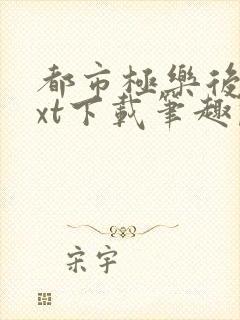 都市極樂後
xt下載筆趣
宋宇